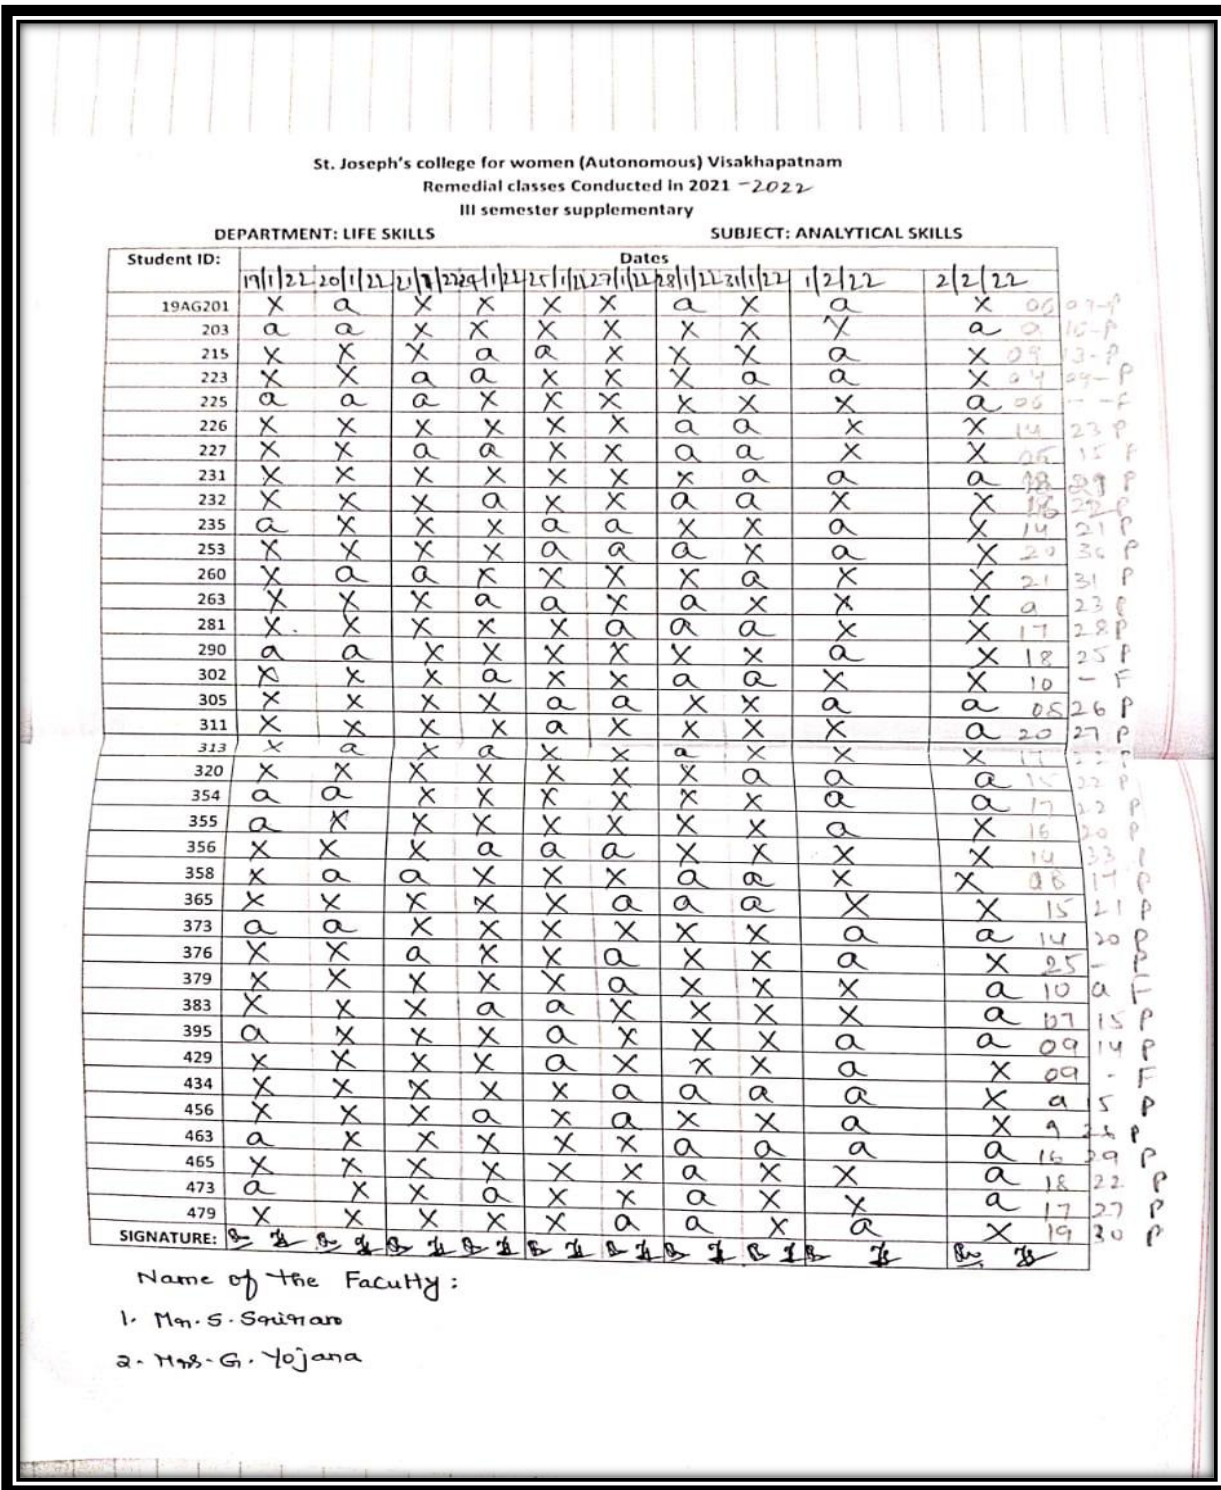 St. Joseph's college for women (Autonomous) Visakhapatnam
Remedial classes Conducted in 2021 -2022
III semester supplementary
DEPARTMENT: LIFE SKILLS SUBJECT: ANALYTICAL SKILLS
Student ID: Dates
19/1/22 20/1/22 21/1/22 24/1/22 25/1/22 27/1/22 28/1/22 31/1/22 1/2/22 2/2/22
19AG201 X a X X X X a X a X
203 a a X X X X X X X a
215 X X X a a X X X a X
223 X X a a X X X a a X
225 a a a X X X X X X a
226 X X X X X X a a X X 14 23 P
227 X X a a X X a a X X
231 X X X X X X X a a a
232 X X X a X X a a X X
235 a X X X a a X X a X 14 21 P
253 X X X X a a a X a X 20 36 P
260 X a a X X X X a X X 21 31 P
263 X X X a a X a X X X a 23 P
281 X X X X X a a a X X 17 28 P
290 a a X X X X X X a X 18 25 P
302 X X X a X X a a X X 10 - F
305 X X X X a a X X a a 08 26 P
311 X X X X a X X X X a 20 27 P
313 X a X a X X a X X X
320 X X X X X X X a a a 15 22 P
354 a a X X X X X X a a 17 22 P
355 a X X X X X X X a X 16 20 P
356 X X X a a a X X X X 14 33
358 X a a X X X a a X X 08 17 P
365 X X X X X a a a X X 15 21 P
373 a a X X X X X X a a 14 20 P
376 X X a X X a X X a X 25 -
379 X X X X X a X X X a 10 a F
383 X X X a a X X X X a 07 15 P
395 a X X X a X X X a a 09 14 P
429 X X X X a X X X a X 09 - F
434 X X X X X a a a a X a 15 P
456 X X X a X a X X a X
463 a X X X X X a a a a 16 29 P
465 X X X X X X a X X a 18 22 P
473 a X X a X X a X X a 17 27 P
479 X X X X X a a X a X 19 30 P
SIGNATURE:
Name of the Faculty:
1. Mr. S. 
2. Mrs. G. Yojana